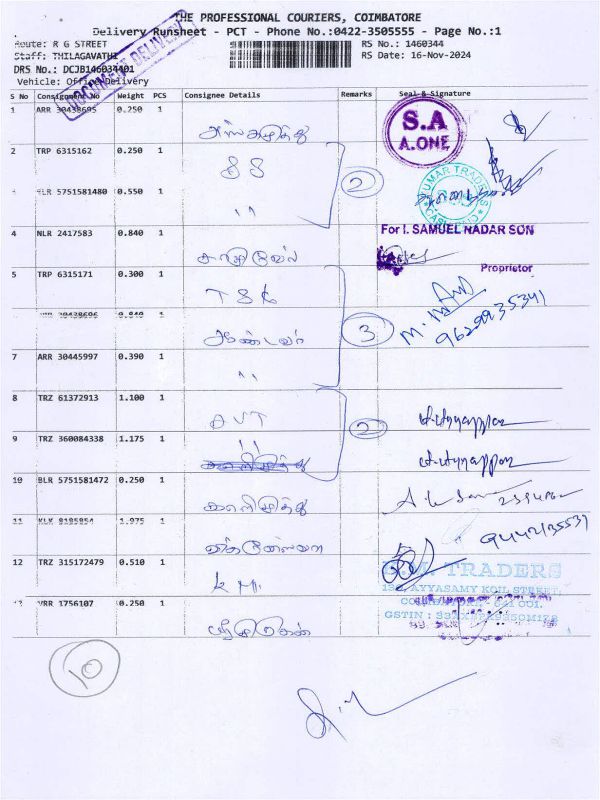 THE PROFESSIONAL COURIERS, COIMBATORE
Delivery Runsheet - PCT - Phone No.:0422-3505555 - Page No.:1
Route: R G STREET
RS No.: 1460344
Staff: THILAGAVATHI
RS Date: 16-Nov-2024
DRS No.: DCJB146034401
Vehicle: Office Delivery
DOCUMENT DELIVERY
S No Consignment No Weight PCS Consignee Details Remarks Seal & Signature
1 ARR 30438695 0.250 1
S.A
A.ONE
2 TRP 6315162 0.250 1
SS
2
KUMAR TRADERS
BLR 5751581480 0.550 1
"
4 NLR 2417583 0.840 1
For I. SAMUEL NADAR SON
சாமுவேல்
Proprietor
5 TRP 6315171 0.300 1
TSK
9629935341
30438696 0.840 1
3
7 ARR 30445997 0.390 1
"
8 TRZ 61372913 1.100 1
AVT
2
9 TRZ 360084338 1.175 1
"
10 BLR 5751581472 0.250 1
காளிமுத்து
11 KLK 8195854 1.975 1
9442135531
12 TRZ 315172479 0.510 1
K M.
S.M. TRADERS
AYYASAMY KOIL STREET,
641 001.
GSTIN :
VRR 1756107 0.250 1
10